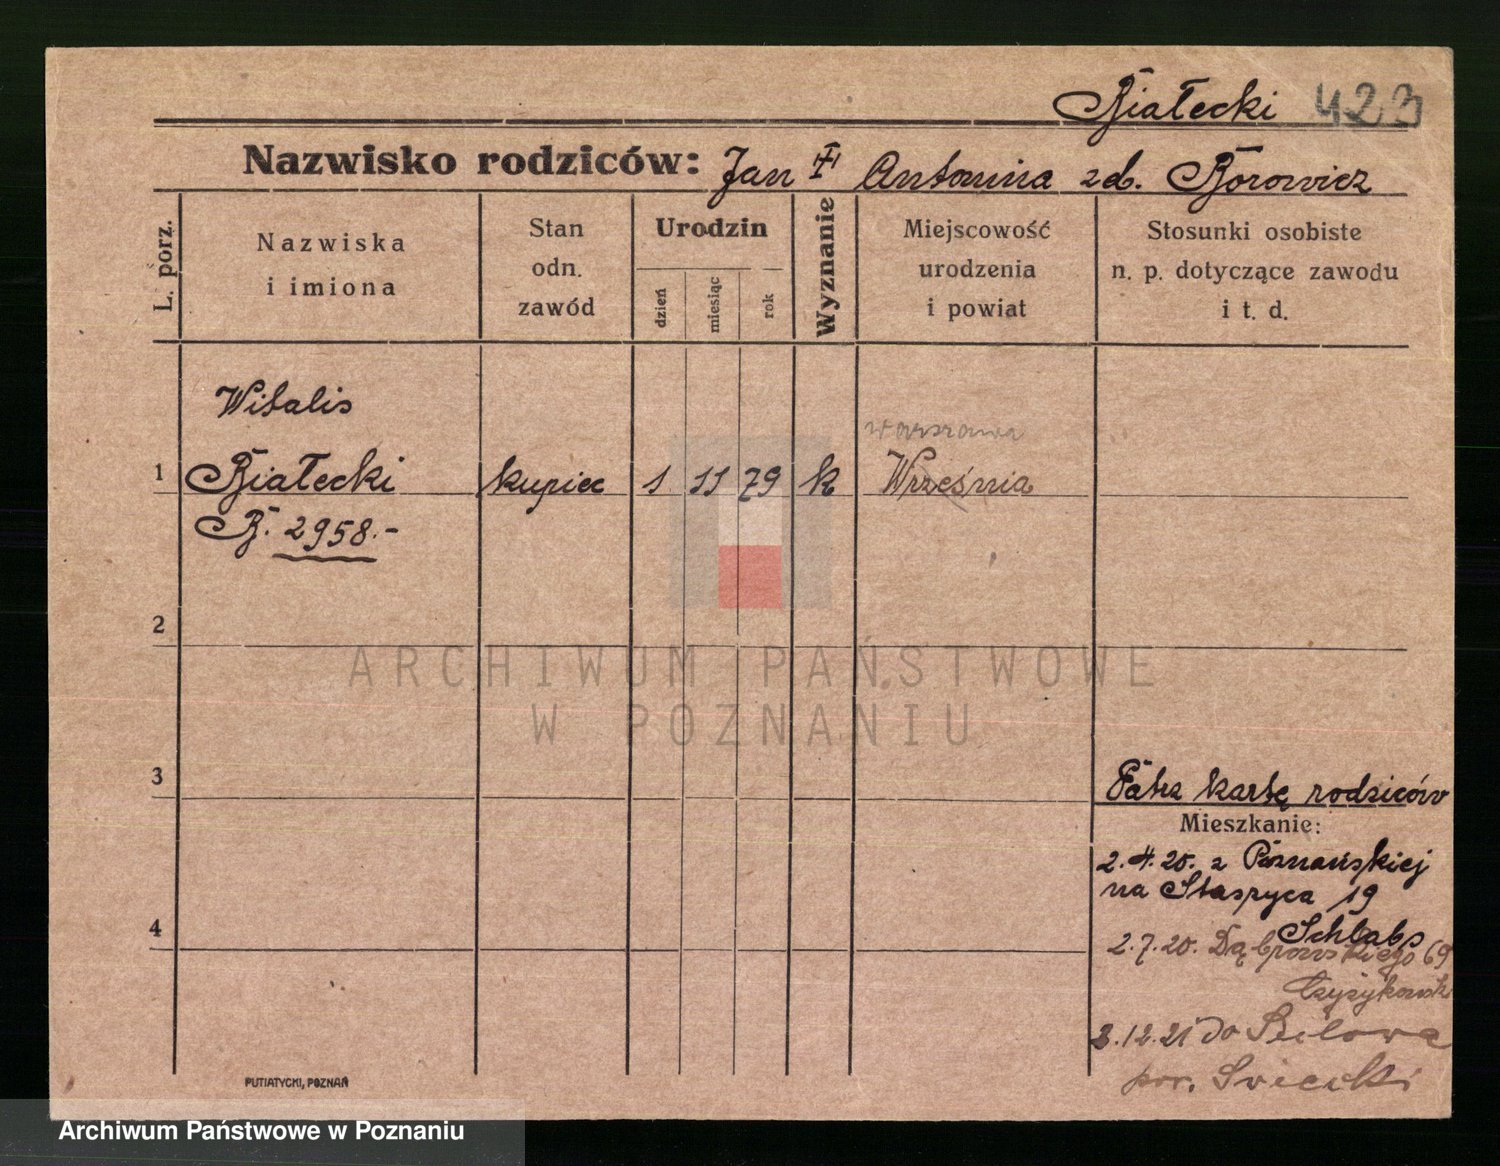 Białecki 423
Nazwisko rodziców: Jan i Antonina zd. Borowicz
L. porz.
Nazwiska
i imiona
Stan
odn.
zawód
Urodzin
dzień
miesiąc
rok
Wyznanie
Miejscowość
urodzenia
i powiat
Stosunki osobiste
n. p. dotyczące zawodu
i t. d.
Witalis
warszawa
1 Białecki kupiec 1 11 79 k Września
B. 2958.-
2
ARCHIWUM PAŃSTWOWE
W POZNANIU
3
Patrz kartę rodziców
Mieszkanie:
2.4.20. z Poznańskiej
na Staszyca 19
4
Schlabs
2.7.20. Dąbrowskiego 69
2.12.21 do
por.
PUTIATYCKI, POZNAŃ
Archiwum Państwowe w Poznaniu